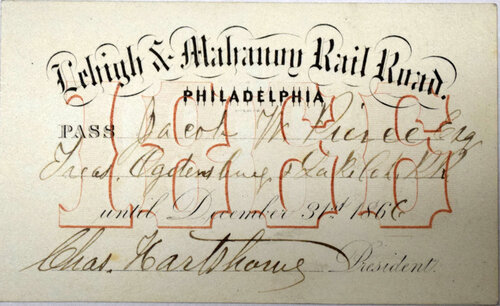 Lehigh & Mahanoy Rail Road.
PHILADELPHIA
1866
PASS Jacob W Pierce Esq
Treas. Ogdensburg & Lake Ch. RR
until December 31st 1866
Chas. Hartshorne President.